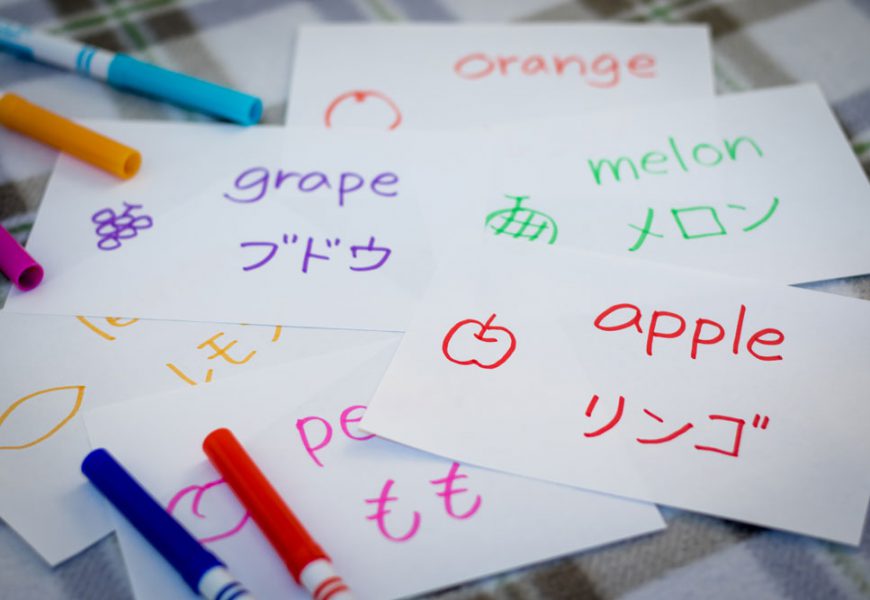 orange
grape
ブドウ
melon
メロン
apple
リンゴ
もも